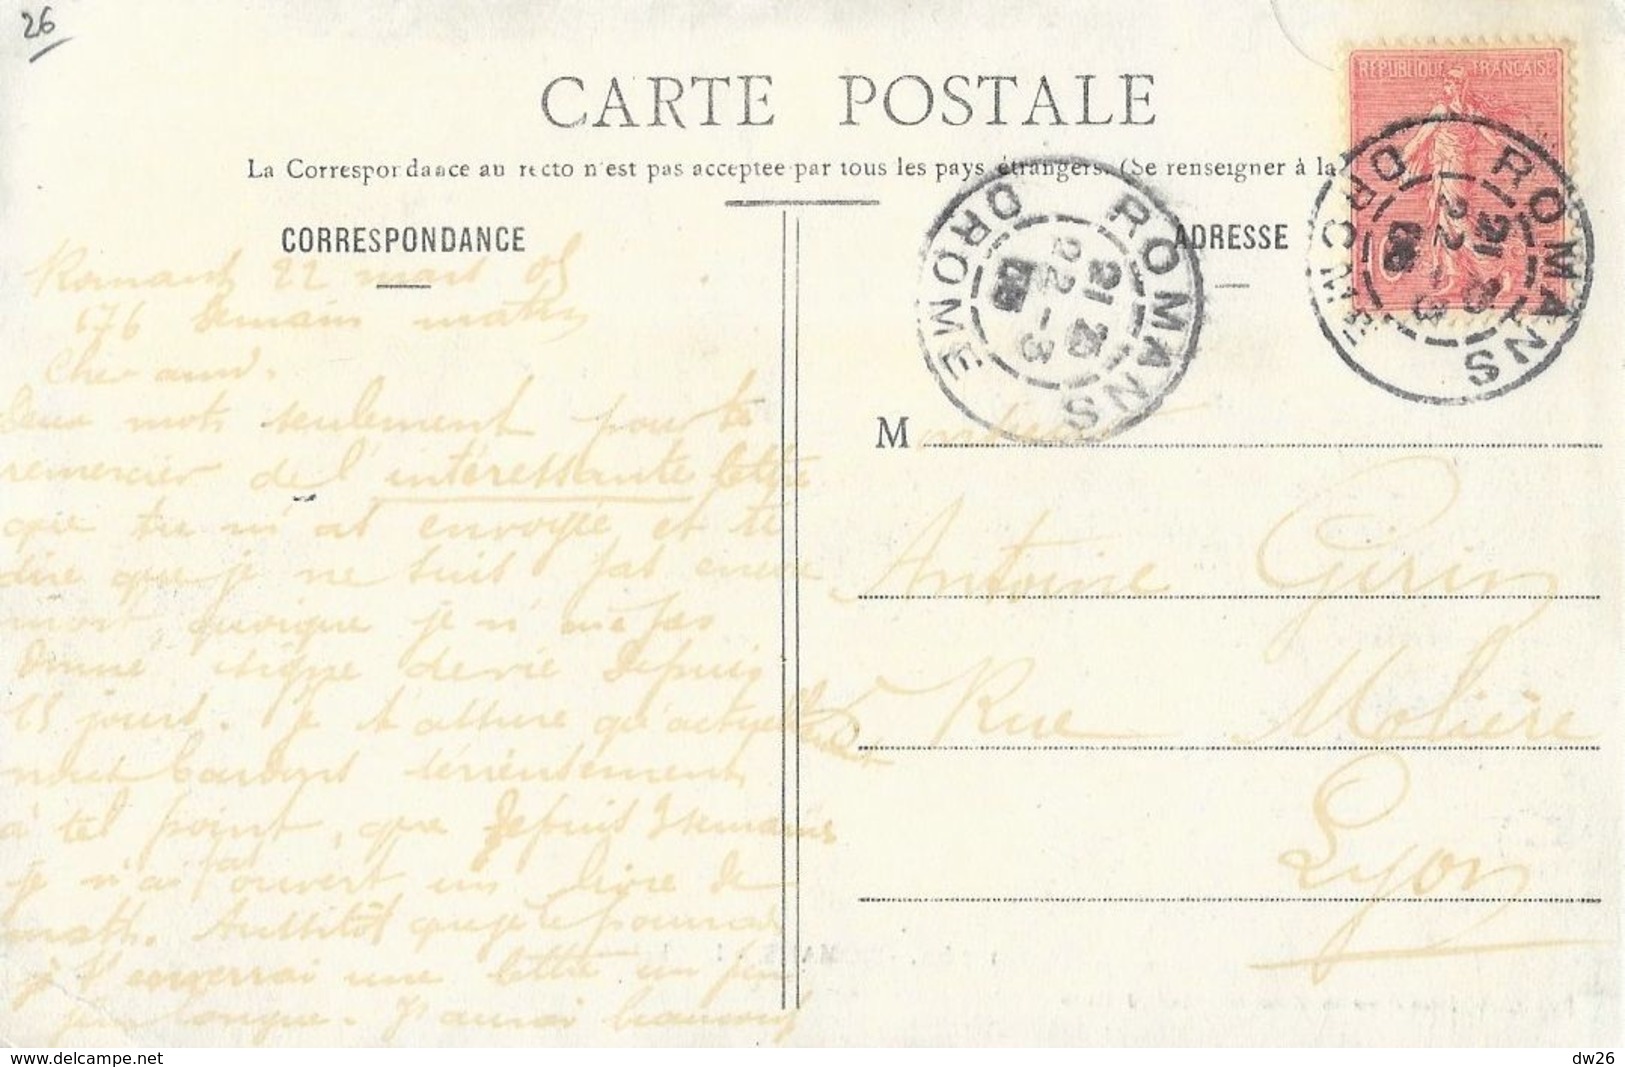 26
CARTE POSTALE
La Correspondance au recto n'est pas acceptée par tous les pays étrangers. (Se renseigner à la
RÉPUBLIQUE FRANÇAISE
ROMANS
DROME
21 22-3 05
ROMANS
DROME
CORRESPONDANCE
Romans 22 mars 05
demain matin
Cher ami.
Deux mots seulement pour te
remercier de l'intéressante lettre
que tu m'as envoyée et te
dire que je ne suis pas encore
mort quoique je n'aie pas
donné signe de vie depuis
15 jours. Je t'assure qu'actuellement
nous sérieusement
à tel point, que depuis 3 semaines
je n'ai pas ouvert un livre de
math. Aussitôt que je le pourrai
je t'enverrai une lettre un peu
plus longue. J'aurai beaucoup
ADRESSE
Monsieur
Antoine Girin
Rue Molière
Lyon
delcampe.net
dw26